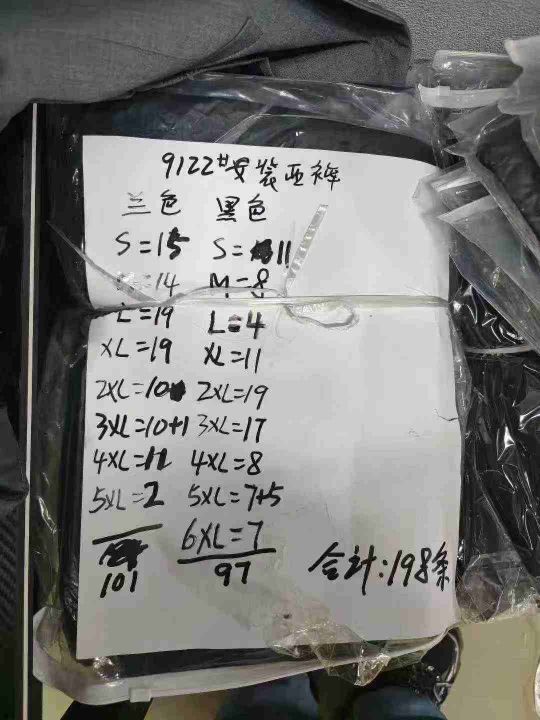 9122#安装西裤
兰色 黑色
S=15 S=11
M=14 M=8
L=19 L=4
XL=19 XL=11
2XL=10 2XL=19
3XL=10+1 3XL=17
4XL=11 4XL=8
5XL=2 5XL=7+5
6XL=7
101 97
合计:198条